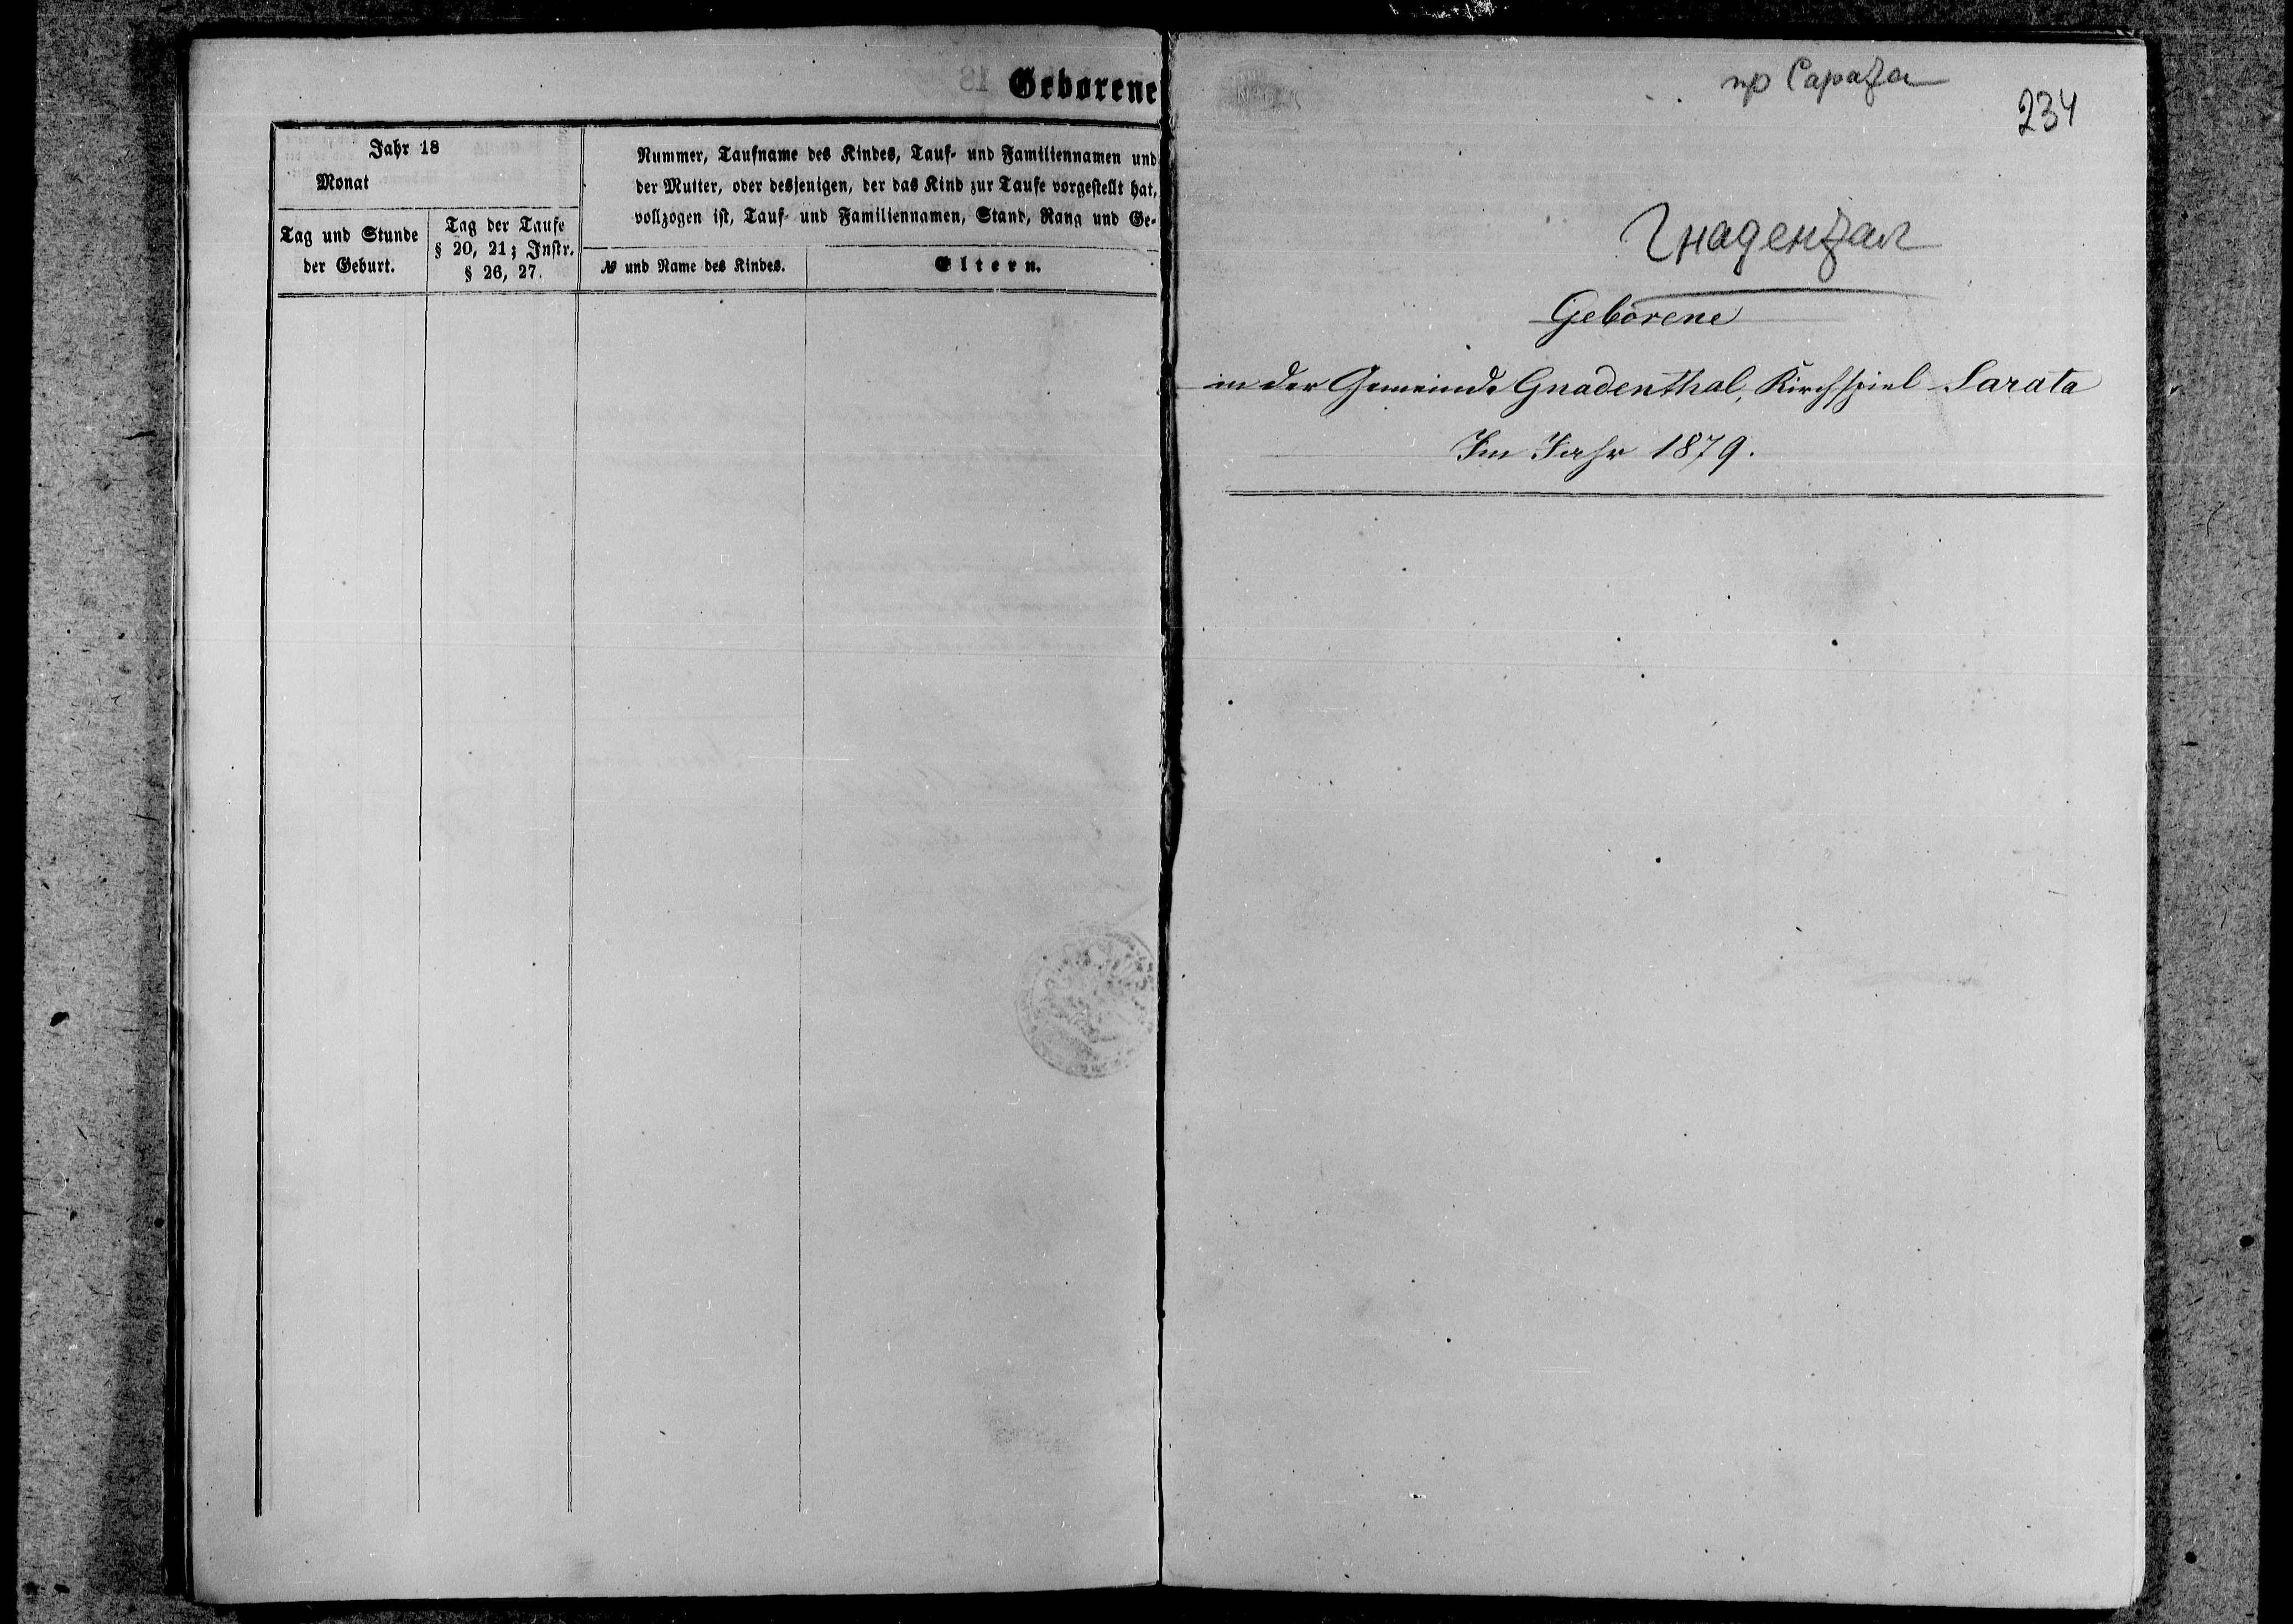 Geborene
Jahr 18
Monat
Tag und Stunde
der Geburt.
Tag der Taufe
§ 20, 21; Instr.
§ 26, 27.
Nummer, Taufname des Kindes, Tauf- und Familiennamen und
der Mutter, oder desjenigen, der das Kind zur Taufe vorgestellt hat,
vollzogen ist, Tauf- und Familiennamen, Stand, Rang und Ge-
№ und Name des Kindes.
Eltern.
пр Сарата
234
Гнадентал
Geborene
in der Gemeinde Gnadenthal, Kirchspiel Sarata
Im Jahr 1879.